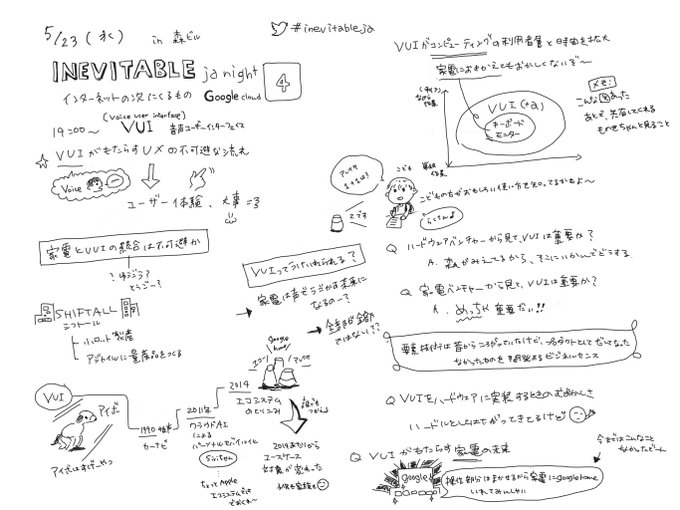 5/23(水) in 森ビル
#inevitableja
INEVITABLE ja night 4
インターネットの次にくるもの Google cloud
(Voice user interface)
19:00〜 VUI 音声ユーザーインターフェイス
☆ VUIがもたらすUXの不可避な流れ
Voice
ユーザー体験、大事
家電とVUIの融合は不可避か
？ゆうごう？
どんどー？
SHIFTALL
シフトール
小ロット製造
アジャイルに量産品をつくる
VUI
アイボ
アイボはすげーやつ
1990
カーナビ
2011年
クラウドAI
による
ちょっとApple
2014
エコシステム
のとりこみ
2014あたりから
ユースケース
対象が変わった
VUIってうけいれられる？
家電は声でうごかす未来に
なるのー？
全部が全部
ではない！？
Google
home
エコー
VUIがコンピューティングの利用者量と時間を拡大
家電におきかえてもおかしくないぞ〜
VUI(+α)
キーボード
モニター
メモ！
こんな図あった
あとで、共有してくれる
ものをちゃんと見ること
こども
こどもの方がおもしろい使い方を知ってるかもよ〜
Q ハードウェアベンチャーから見て、VUIは重要か？
A. 森がみえてるから、そこにいかんでどうする
Q 家電ベンチャーから見て、VUIは重要か？
A. めっちゃ重要だい!!
要素技術は昔からころがっていたけど、プロダクトとしてだしてなか
なかったものを開発するビジネスセンス
Q VUIをハードウェアに実装するときのむずかしさ
ハードルとしてはさがってきてるけど
Q VUIがもたらす家電の未来
今まではこんなこと
なかったどーん
Google
操作部分はまかせるから家電にgooglehome
いれてみんしゃい